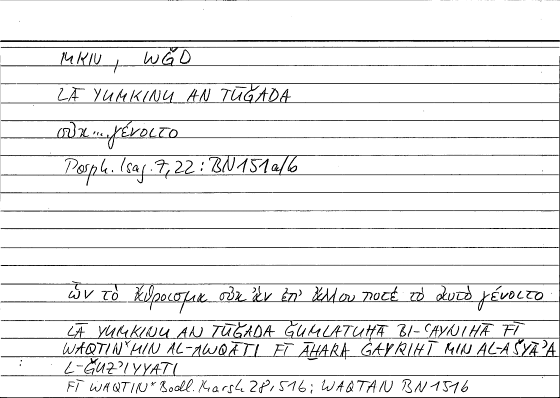 MKN, WǦD
LĀ YUMKINU AN TŪǦADA
οὐκ... γένοιτο
Porph. Isag. 7,22 : BN 151 a/b
ὧν τὸ ἄθροισμα οὐκ ἂν ἐπ' ἄλλου ποτὲ τὸ αὐτὸ γένοιτο
LĀ YUMKINU AN TŪǦADA ǦUMLATUHĀ BI-ʿAYNIHĀ FĪ
WAQTIN* MIN AL-AWQĀTI FĪ ĀḪARA ĠAYRIHĪ MIN AL-AŠYĀʾA
L-ǦUZʾIYYATI
FĪ WAQTIN* Bodl. Marsh 28, 516; WAQTAN BN 1516